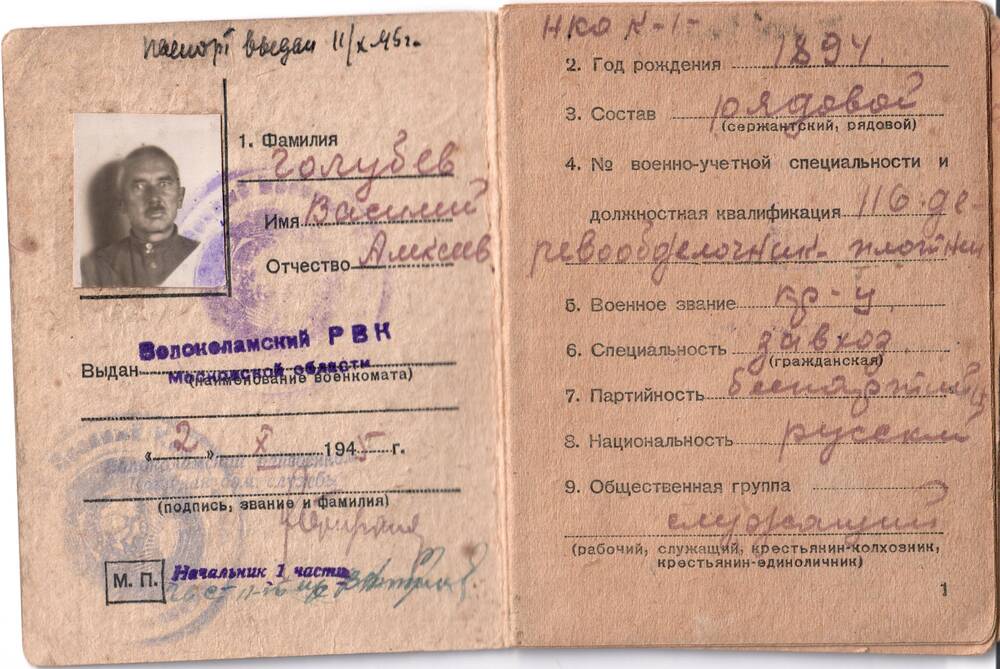 паспорт выдан 11/X 45г.
1. Фамилия
Голубев
Имя Василий
Отчество Алексеев.
Волоколамский РВК
Выдан
Московской области
(наименование военкомата)
«2» X 1945 г.
(подпись, звание и фамилия)
М. П.
Начальник 1 части
НКО К-1-
2. Год рождения 1894
3. Состав рядовой
(сержантский, рядовой)
4. № военно-учетной специальности и
должностная квалификация 116 де-
ревообделочник-плотник
5. Военное звание кр-ц
6. Специальность завхоз
(гражданская)
7. Партийность беспартийный
8. Национальность русский
9. Общественная группа
служащий
(рабочий, служащий, крестьянин-колхозник,
крестьянин-единоличник)
1